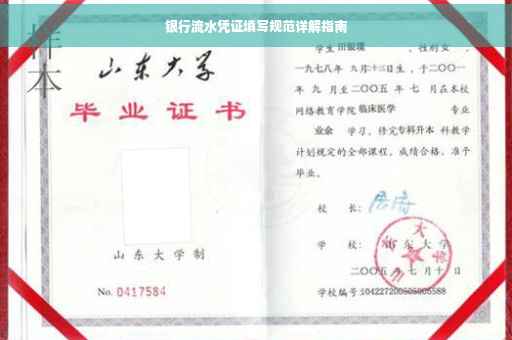 银行流水凭证填写规范详解指南
样本
山东大学
毕业证书
山东大学制
No. 0417584
学生田银环,性别女,
一九七八年九月十三日生,于二〇〇一
年九月至二〇〇五年七月在本校
网络教育学院临床医学专业
业余学习,修完专科升本科教学
计划规定的全部课程,成绩合格,准予
毕业。
校长:
学校:山东大学
二〇〇五年七月十日
学校编号:104227200505005588